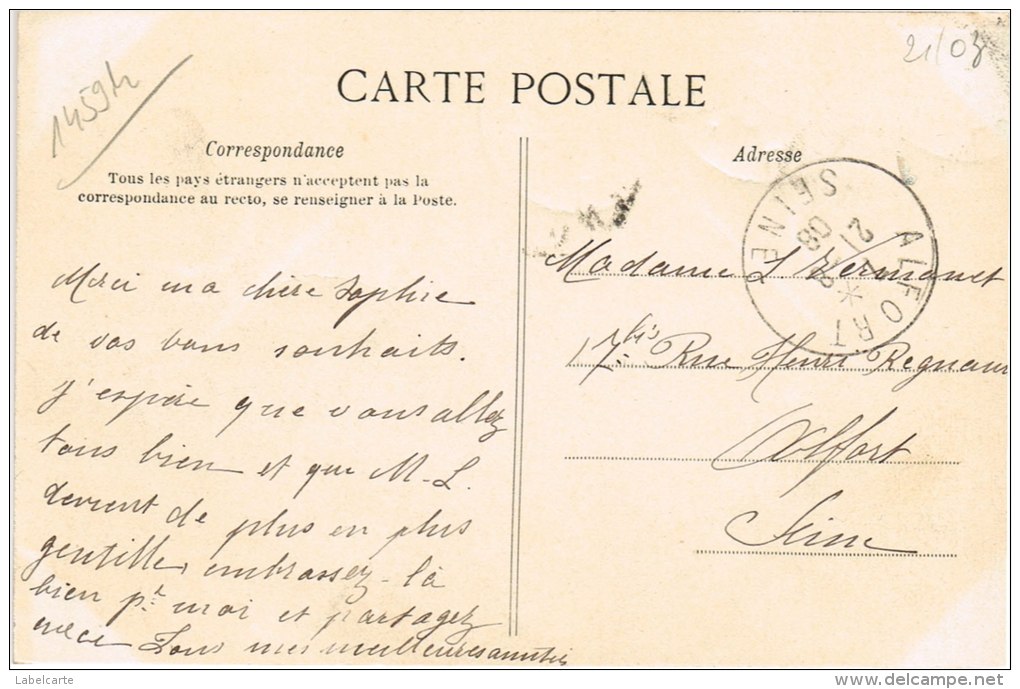 14594
21/03
CARTE POSTALE
Correspondance
Tous les pays étrangers n'acceptent pas la
correspondance au recto, se renseigner à la Poste.
Adresse
ALFORT
SEINE
21
08
Merci ma chère Sophie
de vos bons souhaits.
J'espère que vous allez
tous bien et que M-L.
devient de plus en plus
gentille, embrassez-là
bien pr moi et partagez
avec Tous mes meilleures amitiés
Madame L
17bis Rue Henri Regnau
Alfort
Seine
Labelcarte
www.delcampe.net